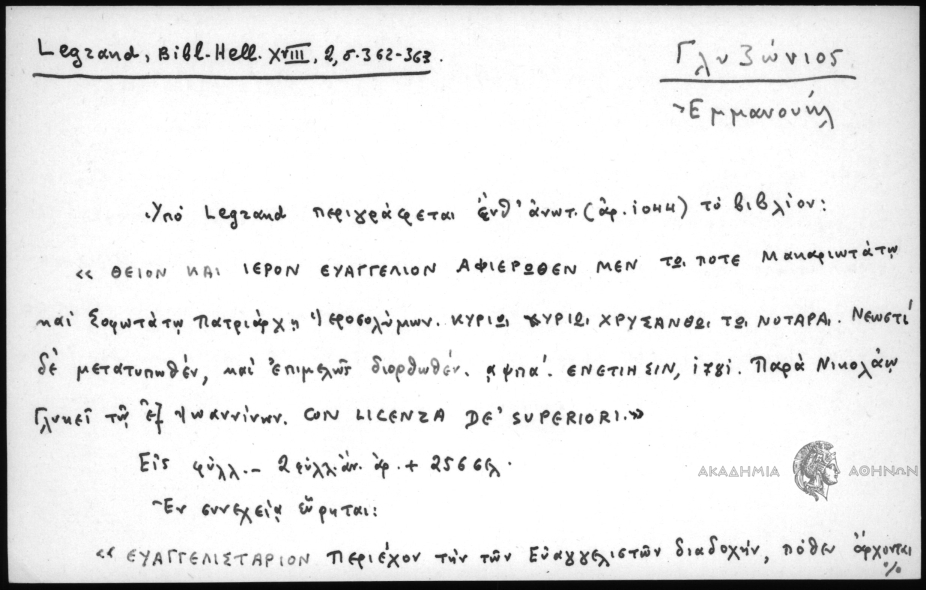 Legrand, Bibl. Hell. XVIII, 2, σ. 362-363.
Γλυζώνιος
Ἐμμανουήλ
Ὑπό Legrand περιγράφεται ἔνθ' ἀνωτ. (ἀρ. 1044) τό βιβλίον:
« ΘΕΙΟΝ ΚΑΙ ΙΕΡΟΝ ΕΥΑΓΓΕΛΙΟΝ ΑΦΙΕΡΩΘΕΝ ΜΕΝ ΤΩι ΠΟΤΕ Μακαριωτάτῳ
καί Σοφωτάτῳ Πατριάρχῃ Ἱεροσολύμων. ΚΥΡΙΩι ΚΥΡΙΩι ΧΡΥΣΑΝΘΩι ΤΩι ΝΟΤΑΡΑι. Νεωστί
δέ μετατυπωθέν, καί ἐπιμελῶς διορθωθέν. ͵αψπά. ΕΝΕΤΙΗΣΙΝ, 1781. Παρά Νικολάῳ
Γλυκεῖ τῷ ἐξ Ἰωαννίνων. CON LICENZA DE' SUPERIORI.»
Εἰς φύλλ. – 2 φύλλ. ἄν. ἀρ. + 256 σελ.
ΑΚΑΔΗΜΙΑ ΑΘΗΝΩΝ
Ἐν συνεχείᾳ εὕρηται:
« ΕΥΑΓΓΕΛΙΣΤΑΡΙΟΝ Περιέχον τήν τῶν Εὐαγγελιστῶν διαδοχήν, πόθεν ἄρχονται
%